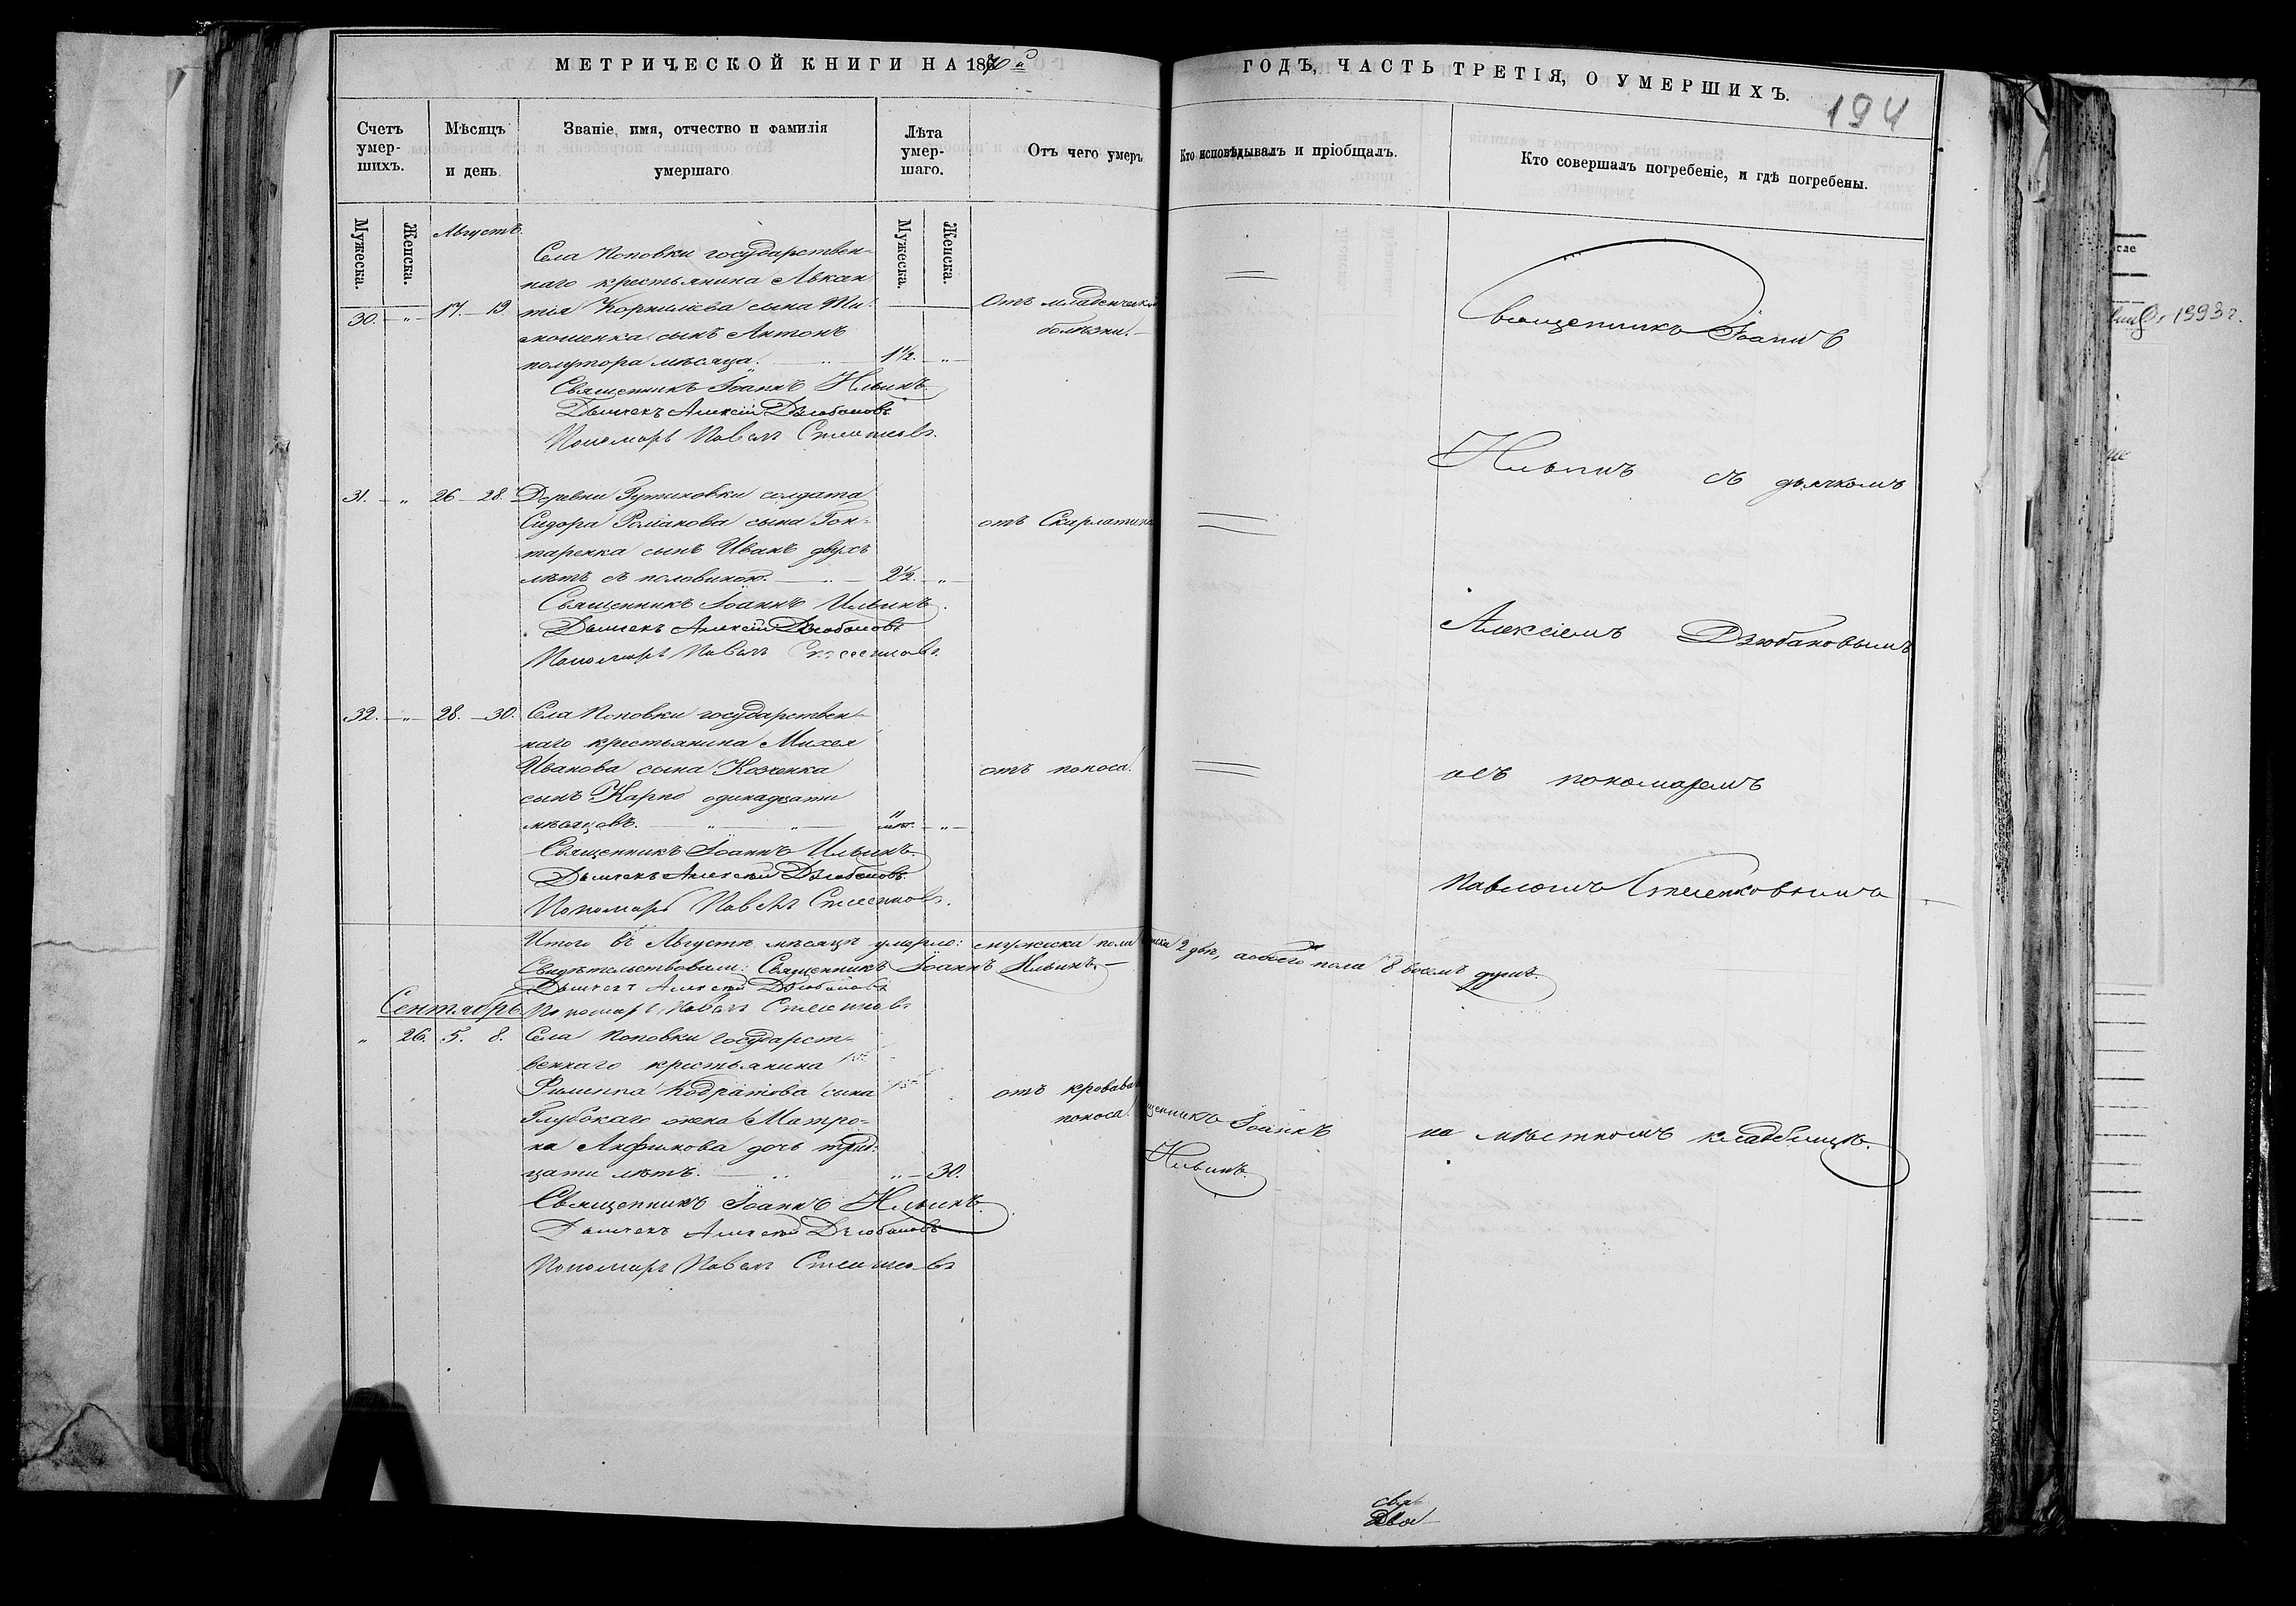 МЕТРИЧЕСКОЙ КНИГИ НА 1870й
ГОДЪ, ЧАСТЬ ТРЕТІЯ, О УМЕРШИХЪ.
194
Счетъ умер-шихъ.
Мѣсяцъ и день.
Званіе, имя, отчество и фамилія умершаго
Лѣта умер-шаго.
Отъ чего умеръ
Кто исповѣдывалъ и пріобщалъ.
Кто совершалъ погребеніе, и гдѣ погребены.
Мужеска.
Женска.
Мужеска.
Женска.
Августъ.
Села Поповки государствен-
наго крестьянина Авксен
30. — „ — 17. — 19. тія Корнилiева сына Ти-
мошенка сынъ Антонъ
полутора мѣсяца. 1½. „
Отъ младенческой
болѣзни.
Священникъ Іоаннъ Ильинъ
Дьячекъ Алексій Дзюбановъ
Пономарь Павелъ
31. — „ 26 — 28. Деревни солдата
Сидора Романова сына Гон-
таренка сынъ Иванъ двухъ
лѣтъ съ половиною. 2½. „
отъ Скарлатина
Священникъ Іоаннъ Ильинъ.
Дьячекъ Алексій Дзюбановъ
Пономарь Павелъ
32. — „ — 28. — 30. Села Поповки государствен-
наго крестьянина Михея
Иванова сына Козченка
сынъ Карпъ одинадцати
мѣсяцовъ. „
отъ поноса.
Священникъ Іоаннъ Ильинъ.
Дьячекъ Алексій Дзюбановъ
Пономарь Павелъ
Итого въ Августѣ мѣсяцѣ умерло: мужеска пола 2 двѣ, а обоего пола 8 восемъ душъ.
Свидѣтельствовали: Священникъ Іоаннъ Ильинъ.
Дьячекъ Алексій Дзюбановъ
Сентябрь Пономарь Павелъ
„ 26. 5. 8. Села Поповки государст-
веннаго крестьянина
Филиппа Кодратова сына
Глубокаго жена Матро-
на Анфимова дочь трид-
цати лѣтъ. „ — 30.
отъ кроваваго
поноса.
Іоаннъ
Ильинъ.
Священникъ Іоаннъ Ильинъ.
Дьячекъ Алексій Дзюбановъ
Пономарь Павелъ
Священникъ Іоаннъ
Ильинъ съ дьячкомъ
Алексіемъ Дзюбановымъ
и съ пономаремъ
Павломъ
на мѣстномъ кладбищѣ.
1993 г.